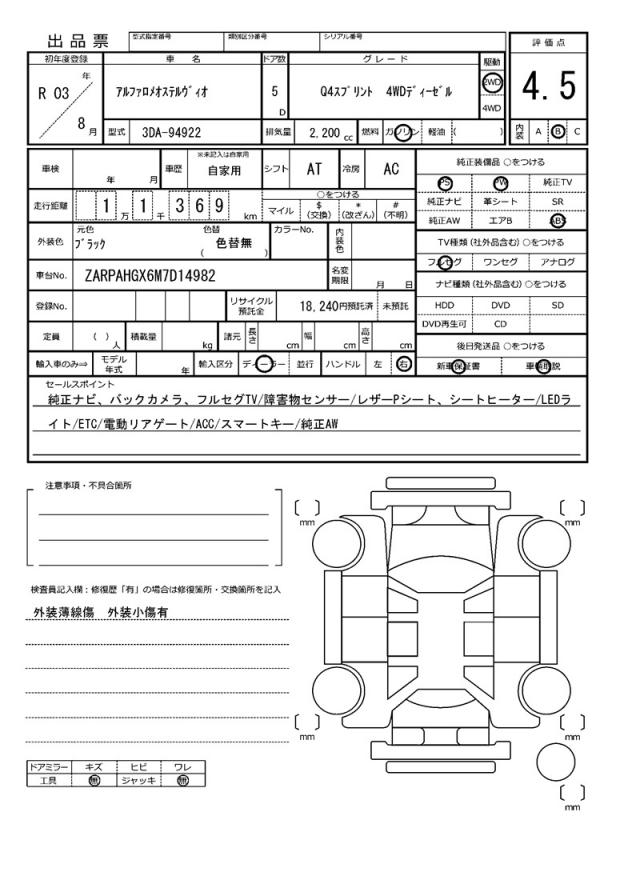 出品票
型式指定番号
類別区分番号
シリアル番号
評価点
初年度登録
車 名
ドア数
グレード
駆動
R 03
年
8
月
アルファロメオステルヴィオ
5
D
Q4スプリント 4WDディーゼル
2WD
4WD
4.5
型式
3DA-94922
排気量
2,200
cc
燃料
ガソリン
軽油
( )
内装
A
B
C
車検
年
月
車歴
※未記入は自家用
自家用
シフト
AT
冷房
AC
純正装備品 ○をつける
PS
PW
純正TV
走行距離
1
万
1
千
3
6
9
km
○をつける
マイル
$
(交換)
*
(改ざん)
#
(不明)
純正ナビ
革シート
SR
純正AW
エアB
ABS
外装色
元色
ブラック
色替
色替無
( )
カラーNo.
内装色
TV種類(社外品含む)○をつける
フルセグ
ワンセグ
アナログ
車台No.
ZARPAHGX6M7D14982
名変期限
月
日
ナビ種類(社外品含む)○をつける
登録No.
リサイクル預託金
18,240円預託済
未預託
HDD
DVD
SD
DVD再生可
CD
定員
( )
人
積載量
kg
諸元
長さ
cm
幅
cm
高さ
cm
後日発送品 ○をつける
輸入車のみ⇒
モデル年式
年
輸入区分
ディーラー
並行
ハンドル
左
右
新車保証書
車輌取説
セールスポイント
純正ナビ、バックカメラ、フルセグTV/障害物センサー/レザーPシート、シートヒーター/LEDラ
イト/ETC/電動リアゲート/ACC/スマートキー/純正AW
注意事項・不具合箇所
mm
mm
検査員記入欄：修復歴「有」の場合は修復箇所・交換箇所を記入
外装薄線傷 外装小傷有
mm
mm
ドアミラー
キズ
ヒビ
ワレ
工具
無
ジャッキ
無
mm